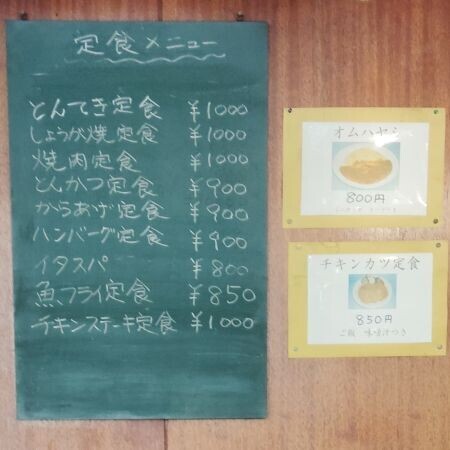 定食メニュー
とんてき定食 ¥1000
しょうが焼定食 ¥1000
焼肉定食 ¥1000
とんかつ定食 ¥900
からあげ定食 ¥900
ハンバーグ定食 ¥900
イタスパ ¥800
魚フライ定食 ¥850
チキンステーキ定食 ¥1000
オムハヤシ
800円
チキンカツ定食
850円
ご飯 味噌汁つき